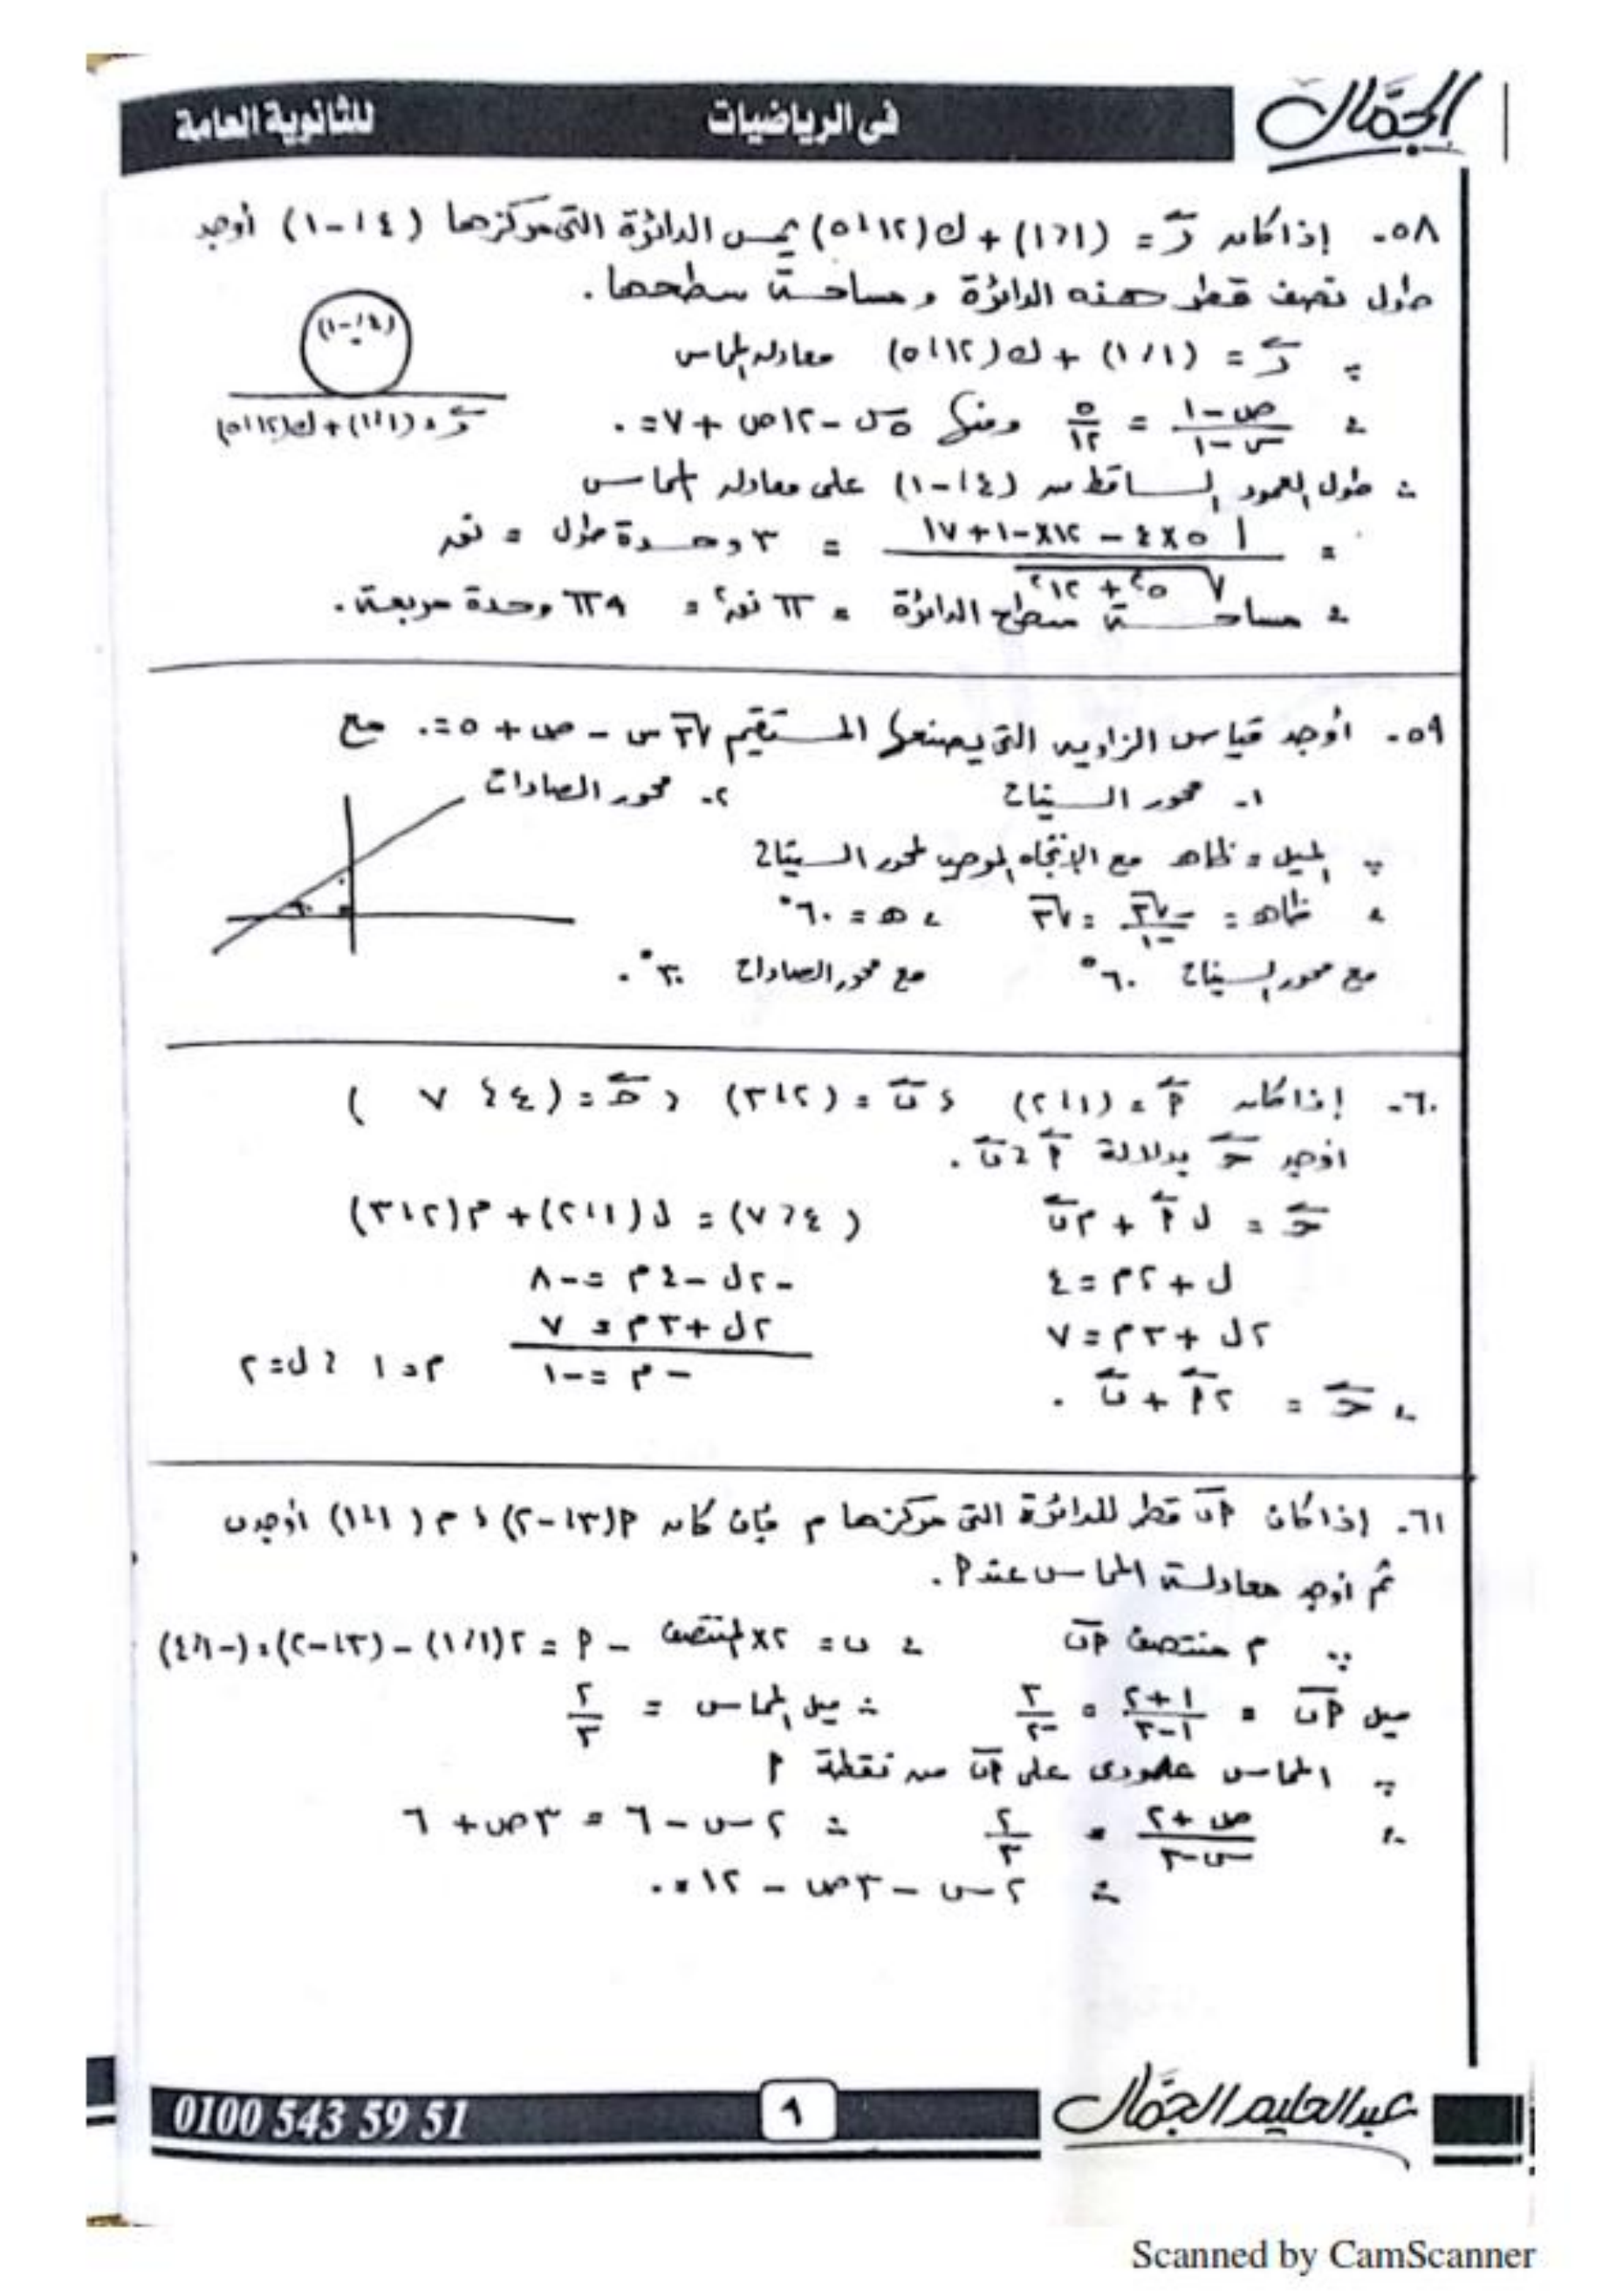 الجمّال
فى الرياضيات
للثانوية العامة
٥٨- إذا كان ر = (١،١) + ك(١٢،٥) يمس الدائرة التى مركزها (٤،-١) أوجد
طول نصف قطر هذه الدائرة ومساحة سطحها.
(٤،-١)
ر = (١،١) + ك(١٢،٥)
∵ ر = (١،١) + ك(١٢،٥) معادلة المماس
، (ص-١)/(س-١) = ٥/١٢ ومنها ٥س - ١٢ص + ٧ = ٠
∴ طول العمود الساقط من (٤،-١) على معادلة المماس
= |٥×٤ - ١٢×-١ + ٧| / √(٥² + ١٢²) = ٣ وحدة طول = نق
، مساحة سطح الدائرة = π نق² = ٩π وحدة مربعة.
٥٩- أوجد قياس الزاوية التى يصنعها المستقيم √٣ س - ص + ٥ = ٠ مع
١- محور السينات ٢- محور الصادات
∵ الميل = ظاهـ مع الإتجاه الموجب لمحور السينات
، ظاهـ = -√٣/-١ = √٣ ، هـ = ٦٠°
٦٠
مع محور السينات ٦٠° مع محور الصادات ٣٠°.
٦٠- إذا كان أ = (١،٢) ، ب = (٢،٣) ، جـ = (٤، ٧ )
أوجد جـ بدلالة أ ، ب .
جـ = ل أ + م ب (٤،٧) = ل(١،٢) + م(٢،٣)
ل + ٢م = ٤ -٢ل - ٤م = -٨
٢ل + ٣م = ٧ ٢ل + ٣م = ٧
-م = -١ م = ١ ، ل = ٢
، جـ = ٢أ + ب .
٦١- إذا كان أب قطر للدائرة التى مركزها م فإن كان أ(٣،-٢) ، م(١،١) أوجد ب
ثم أوجد معادلة المماس عند أ.
∵ م منتصف أب ، ب = ٢×المنتصف - أ = ٢(١،١) - (٣،-٢) = (-١،٤)
ميل أب = (١+٢)/(١-٣) = ٣/-٢ ∴ ميل المماس = ٢/٣
∵ المماس عمودى على أب من نقطة أ
∴ (ص+٢)/(س-٣) = ٢/٣ ∴ ٢س - ٦ = ٣ص + ٦
∴ ٢س - ٣ص - ١٢ = ٠
عبدالحليم الجمّال
٩
0100 543 59 51
Scanned by CamScanner